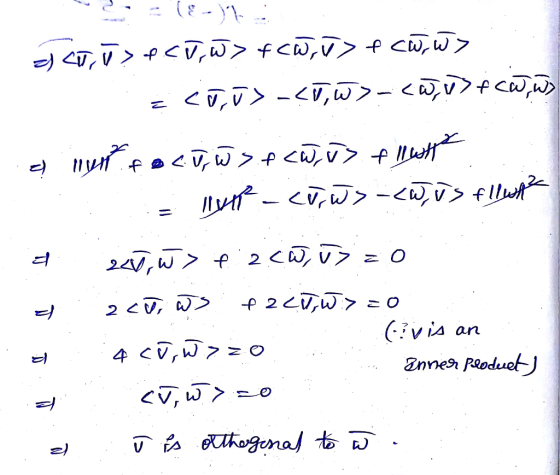 ⇒ <v̅, v̅> + <v̅, w̅> + <w̅, v̅> + <w̅, w̅>
= <v̅, v̅> - <v̅, w̅> - <w̅, v̅> + <w̅, w̅>
⇒ ||v||² + <v̅, w̅> + <w̅, v̅> + ||w||²
= ||v||² - <v̅, w̅> - <w̅, v̅> + ||w||²
⇒ 2<v̅, w̅> + 2<w̅, v̅> = 0
⇒ 2<v̅, w̅> + 2<v̅, w̅> = 0
(∵ v is an
⇒ 4<v̅, w̅> = 0
Inner product)
⇒ <v̅, w̅> = 0
⇒ v̅ is orthogonal to w̅.